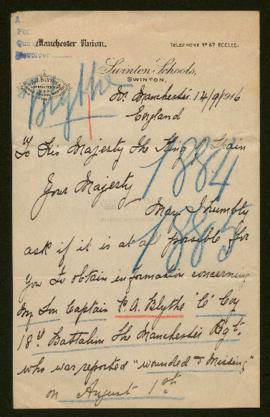 Manchester Union.
TELEPHONE Nº 67 ECCLES.
Swinton Schools,
SWINTON,
Blythe
Nr. Manchester 14/9/1916
England
To His Majesty The King of Spain
Your Majesty
1884
May I humbly
1885
ask if it is at all possible for
You to obtain information concerning
My Son Captain C. A. Blythe "C" Coy
18th Battalion The Manchester Rgt.
who was reported "wounded & missing"
on August 1st